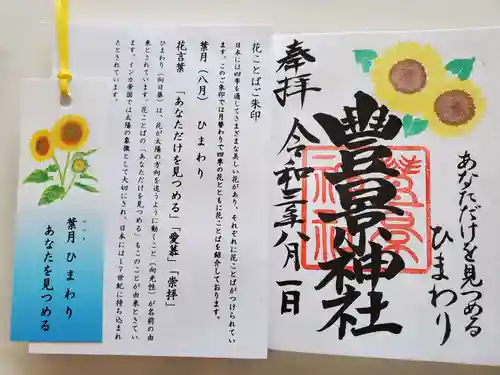 奉拝
豊景神社
令和三年八月一日
あなただけを見つめる
ひまわり
花ことばご朱印
日本には四季を通してさまざまな美しい花があり、それぞれに花ことばがつけられてい
ます。このご朱印では月替わりで四季の花とともに花ことばを紹介しております。
葉月（八月）　ひまわり
花言葉　「あなただけを見つめる」「愛慕」「崇拝」
ひまわり（向日葵）は、花が太陽の方向を追うように動くこと（向光性）が名前の由
来とされています。花ことばの「あなただけを見つめる」もこのことが由来とさてい
ます。インカ帝国では太陽の象徴として大切にされ、日本には17世紀に持ち込まれ
たとされています。
葉月　ひまわり
あなたを見つめる